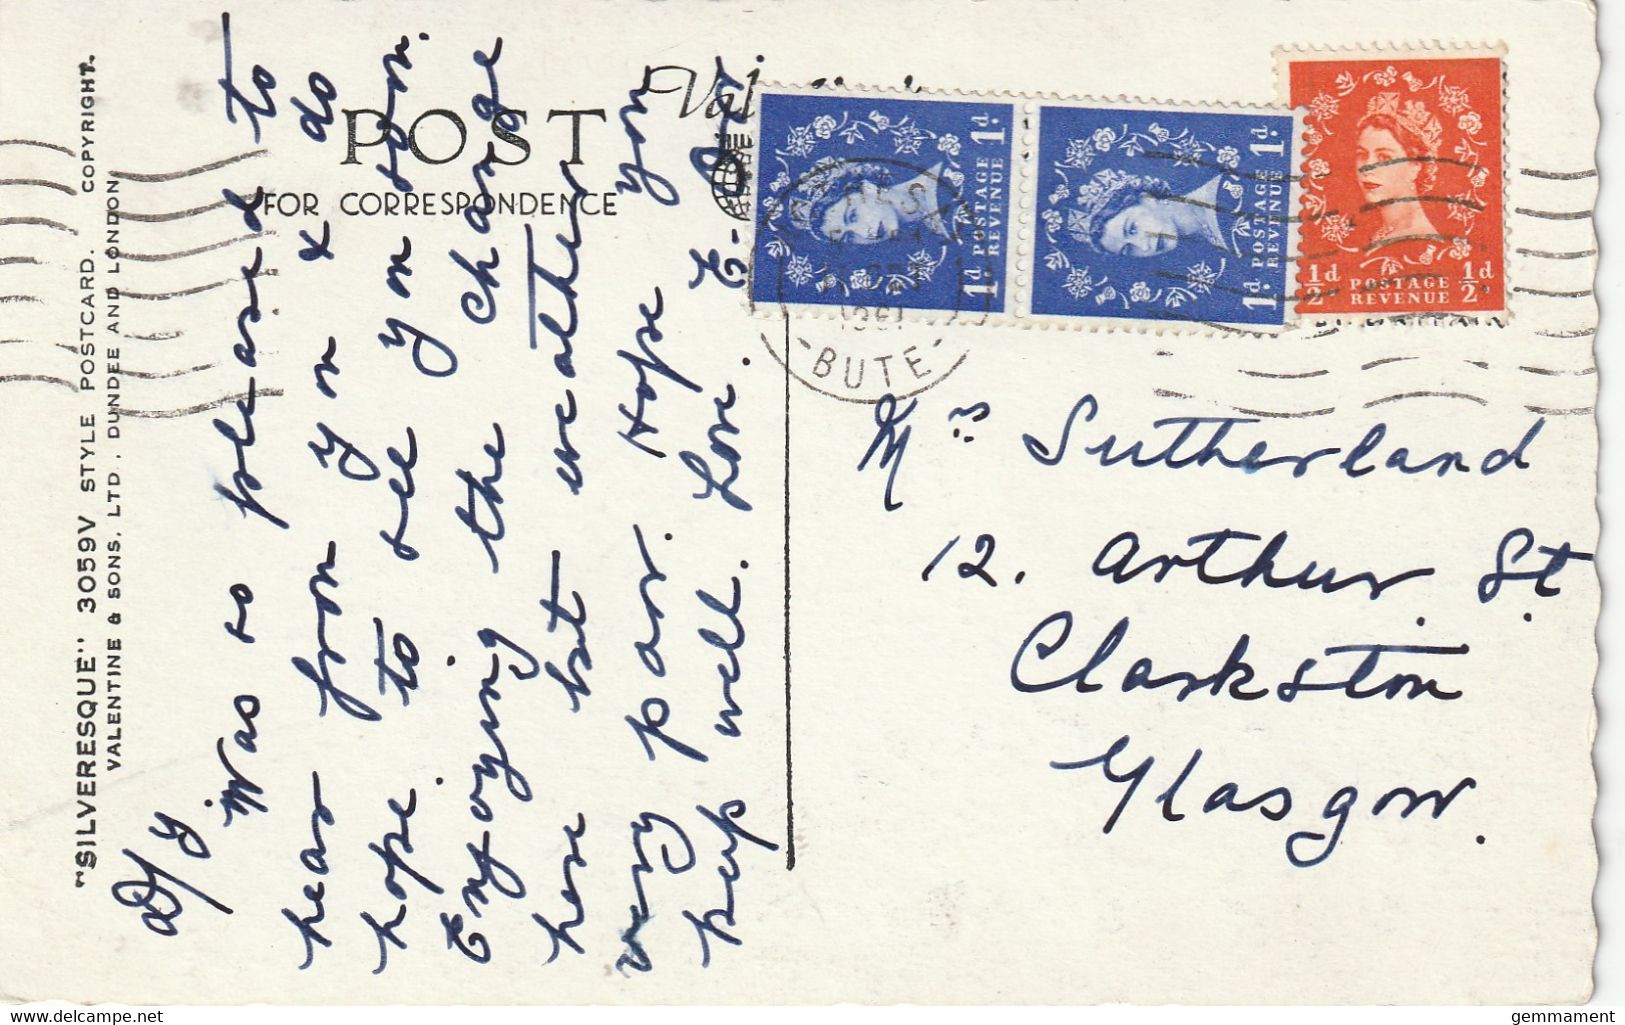 "SILVERESQUE" 3059V STYLE POSTCARD. COPYRIGHT.
VALENTINE & SONS, LTD., DUNDEE AND LONDON
POST
FOR CORRESPONDENCE
Val
D/Y
Was so pleased to
hear from you & do
hope to see you soon.
Enjoying the change
here but weather
very poor. Hope you
keep well. Love. E.
1d POSTAGE REVENUE 1d
1d POSTAGE REVENUE 1d
½d POSTAGE REVENUE ½d
1961
-BUTE-
Mrs Sutherland
12. Arthur. St.
Clarkston
Glasgow.
delcampe.net
gemmament